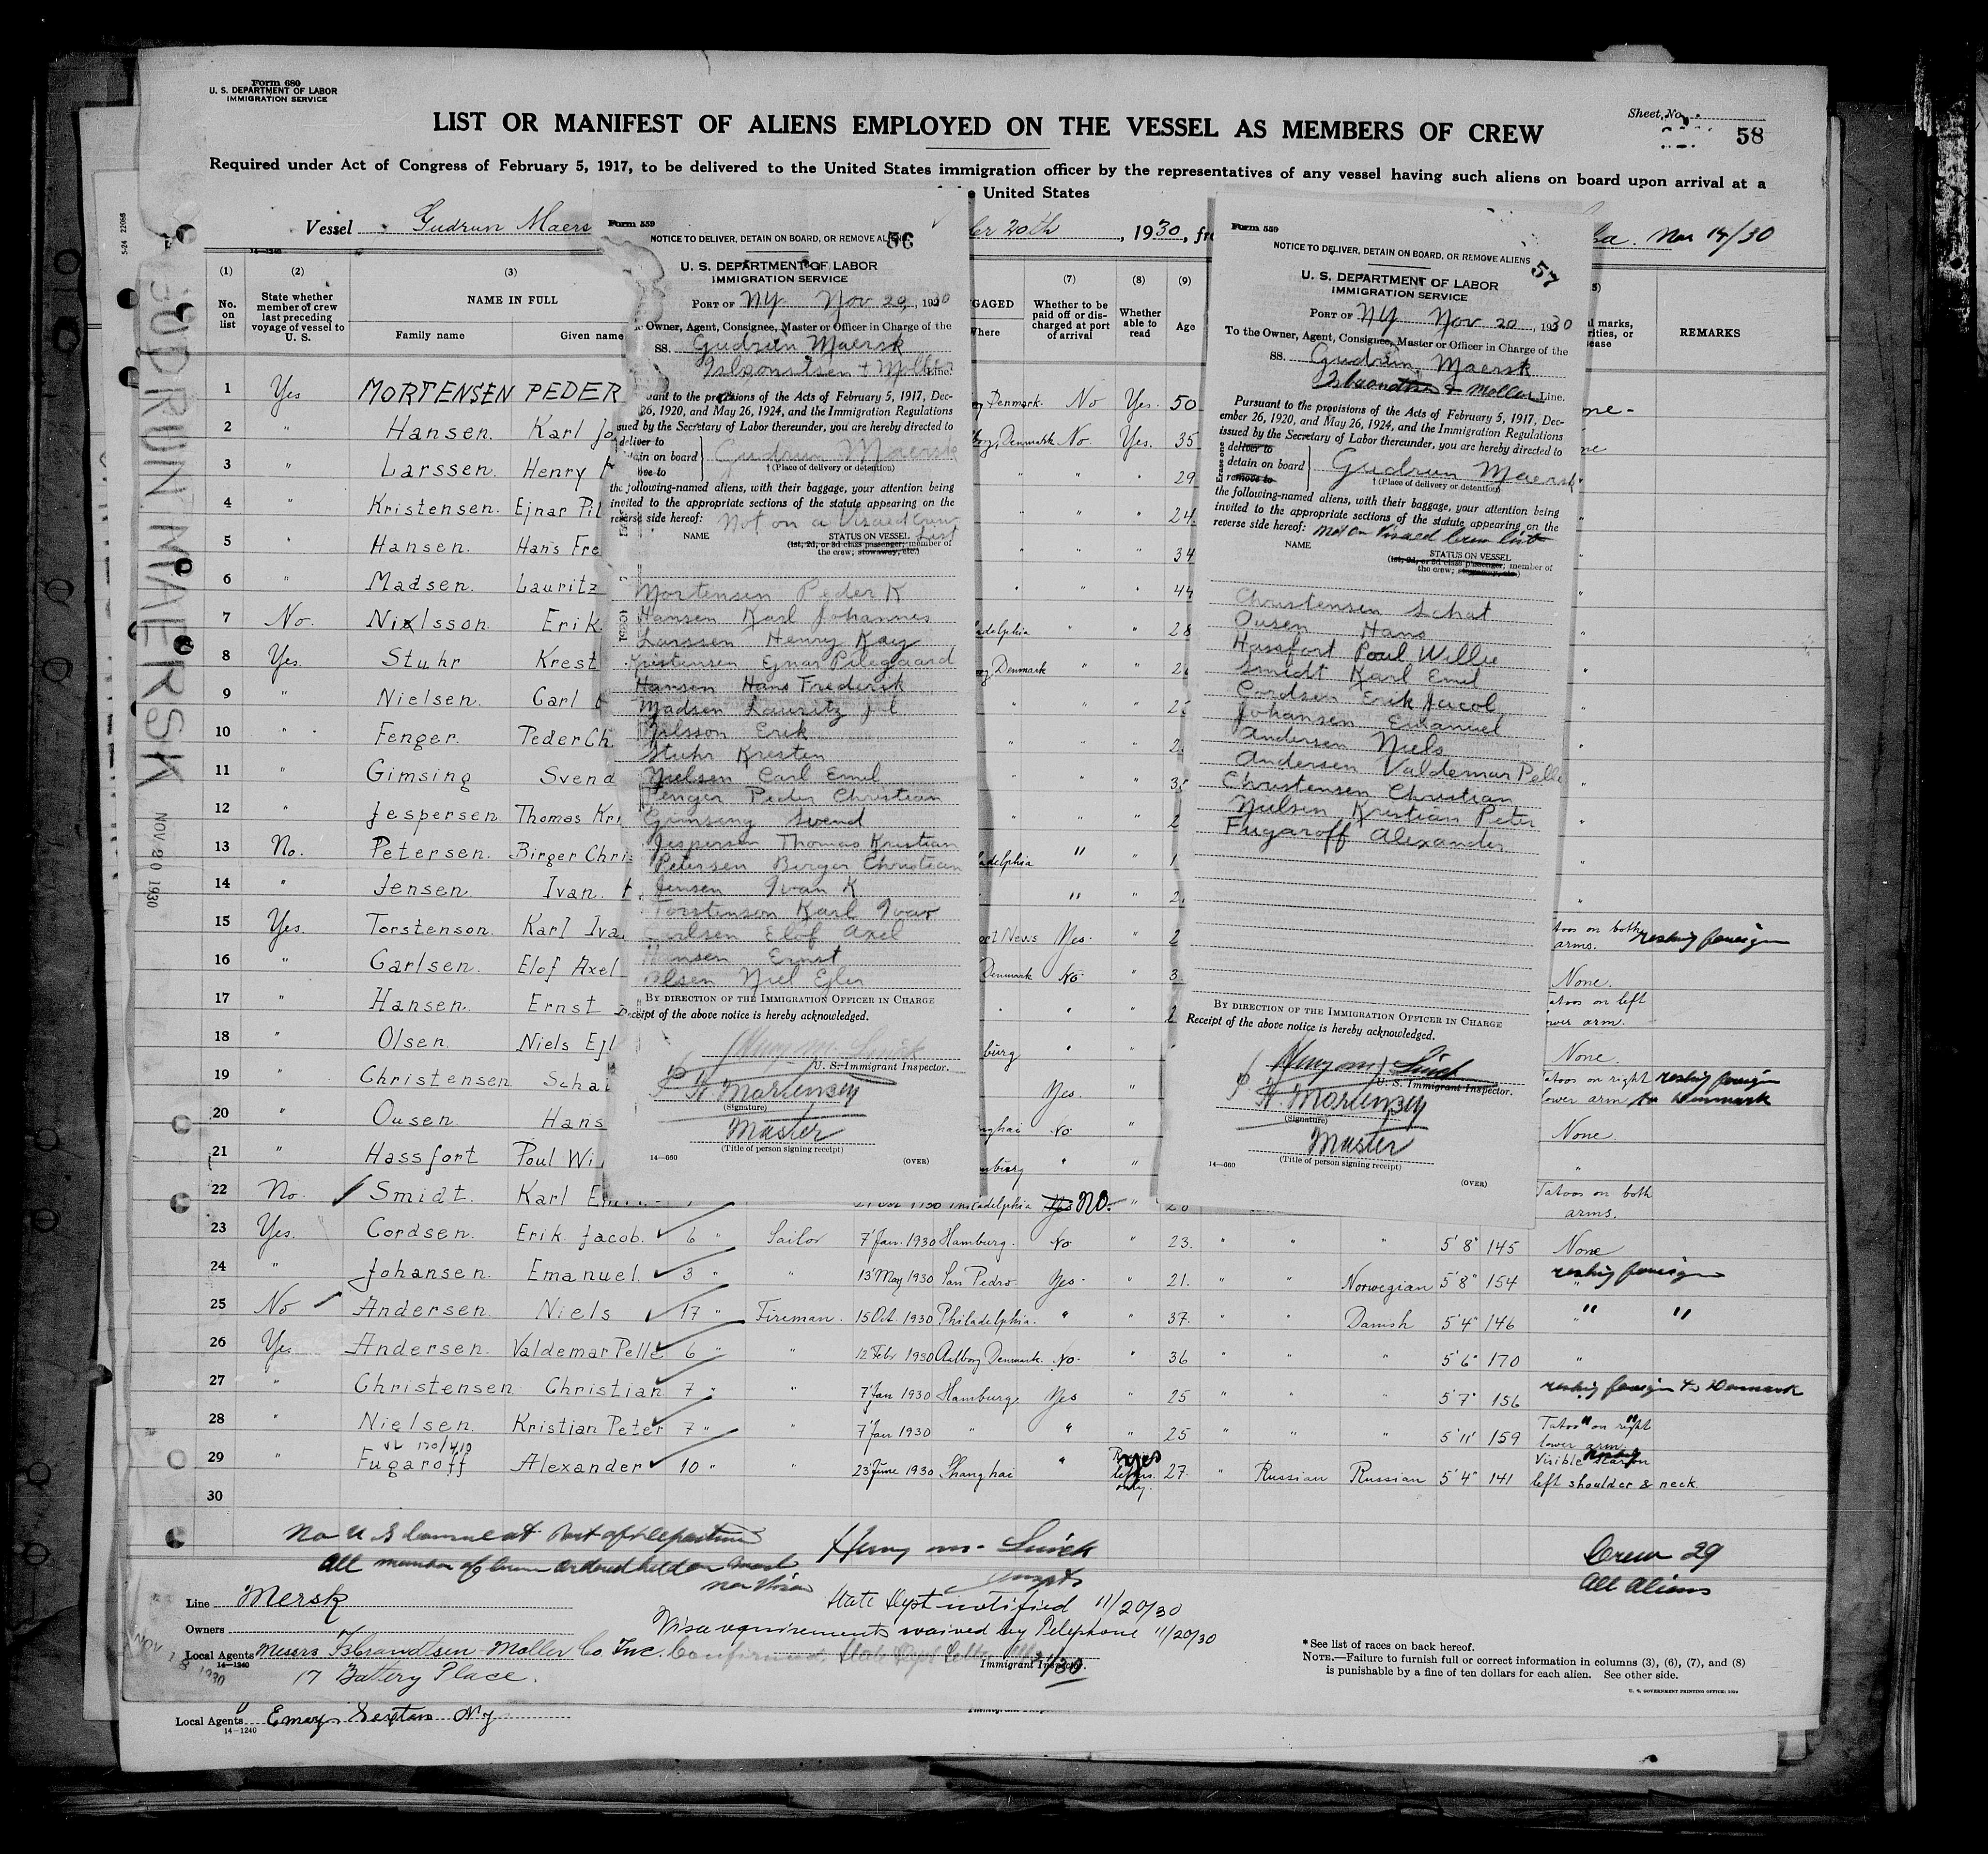 Form 680
U. S. DEPARTMENT OF LABOR
IMMIGRATION SERVICE
Sheet No.
58
LIST OR MANIFEST OF ALIENS EMPLOYED ON THE VESSEL AS MEMBERS OF CREW
Required under Act of Congress of February 5, 1917, to be delivered to the United States immigration officer by the representatives of any vessel having such aliens on board upon arrival at a
United States
Vessel Gudrun Maers
20th, 1930, fr
Nov 14/30
14—1240
(1) (2) (3) (7) (8) (9)
No. on list
State whether member of crew last preceding voyage of vessel to U. S.
NAME IN FULL
Family name Given nam
GAGED
Where
Whether to be paid off or discharged at port of arrival
Whether able to read
Age
REMARKS
GUDRUN MAERSK
NOV 20 1930
1 Yes MORTENSEN PEDER Denmark. No Yes. 50
2 " Hansen. Karl Jo Denmark No. Yes. 35
3 " Larssen. Henry " " 29
4 " Kristensen. Ejnar Pil " " 24.
5 " Hansen. Hans Fre " " 34
6 " Madsen. Lauritz " " 44
7 No. Nielsson Erik adelphia " " 28
8 Yes Stuhr Krest Denmark " "
9 " Nielsen. Carl " "
10 " Fenger. Peder Ch " "
11 " Gimsing Svend " "
12 " Jespersen Thomas Kri " "
13 No. Petersen. Birger Chris adelphia " "
14 " Jensen Ivan. " "
15 Yes. Torstenson. Karl Iva News Yes. " toos on both arms. reship foreign
16 " Carlsen. Elof Axel Denmark No. " None.
17 " Hansen. Ernst " " atoos on left ower arm.
18 " Olsen. Niels Ejl burg " " None.
19 " Christensen Scha Yes. " Tatoos on right lower arm reship foreign to Denmark
20 " Ousen. Hans nghai No " None.
21 " Hassfort Poul Wi mburg " " "
22 No. Smidt. Karl E adelphia Yes No. " Tatoos on both arms.
23 Yes. Cordsen. Erik Jacob. 6 " Sailor 7' Jan. 1930 Hamburg. No " 23. " " " 5'8" 145 None
24 " Johansen. Emanuel. 3 " " 13' May 1930 San Pedro. Yes. " 21. " " Norwegian 5'8" 154 " reship foreign
25 No Andersen. Niels 17 " Fireman. 15 Oct. 1930 Philadelphia. " " 37. " " Danish 5'4" 146 " " "
26 Yes Andersen. Valdemar Pelle 6 " " 12 Febr 1930 Aalborg Denmark. No. " 36 " " " 5'6" 170 "
27 " Christensen Christian 7 " " 7' Jan 1930 Hamburg. Yes " 25 " " " 5'7" 156 reship foreign to Denmark
28 " Nielsen. Kristian Peter 7 " " 7' Jan 1930 " " " 25 " " " 5'11' 159 Tatoo on right lower arm
29 " Fugaroff Alexander 10 " " 23' June 1930 Shanghai " yes 27. " Russian Russian 5'4" 141 Visible scar on left shoulder & neck.
30
Form 559
56
NOTICE TO DELIVER, DETAIN ON BOARD, OR REMOVE ALIENS
U. S. DEPARTMENT OF LABOR
IMMIGRATION SERVICE
PORT OF NY Nov 20, 1930
Owner, Agent, Consignee, Master or Officer in Charge of the
SS. Gudrun Maersk
Line.
uant to the provisions of the Acts of February 5, 1917, Dec-
26, 1920, and May 26, 1924, and the Immigration Regulations
sued by the Secretary of Labor thereunder, you are hereby directed to
deliver to
tain on board Gudrun Maersk
ove to
†(Place of delivery or detention)
the following-named aliens, with their baggage, your attention being
invited to the appropriate sections of the statute appearing on the
reverse side hereof: Not on a Visaed Crew List
NAME
STATUS ON VESSEL
(1st, 2d, or 3d class passenger; member of
the crew; stowaway, etc.)
Mortensen Peder K
Hansen Karl Johannes
Larssen Henry Kay
Kristensen Ejnar Pilegaard
Hansen Hans Frederik
Madsen Lauritz Jul
Nilsson Erik
Stuhr Kresten
Nielsen Carl Emil
Fenger Peder Christian
Gimsing Svend
Jespersen Thomas Kristian
Petersen Birger Christian
Jensen Ivan K
Torstenson Karl Ivar
Carlsen Elof Axel
Hansen Ernst
Olsen Niel Ejler
BY DIRECTION OF THE IMMIGRATION OFFICER IN CHARGE
Receipt of the above notice is hereby acknowledged.
Henry M. Linick
U. S. Immigrant Inspector.
Mortensen
(Signature)
Master
(Title of person signing receipt)
14—660
(OVER)
Form 559
57
NOTICE TO DELIVER, DETAIN ON BOARD, OR REMOVE ALIENS
U. S. DEPARTMENT OF LABOR
IMMIGRATION SERVICE
PORT OF NY Nov 20, 1930
To the Owner, Agent, Consignee, Master or Officer in Charge of the
SS. Gudrun Maersk
Isbrandtsen & Moller Line.
Pursuant to the provisions of the Acts of February 5, 1917, Dec-
ember 26, 1920, and May 26, 1924, and the Immigration Regulations
issued by the Secretary of Labor thereunder, you are hereby directed to
deliver to
detain on board Gudrun Maersk
remove to
†(Place of delivery or detention)
the following-named aliens, with their baggage, your attention being
invited to the appropriate sections of the statute appearing on the
reverse side hereof: Not on Visaed Crew list
NAME
STATUS ON VESSEL
(1st, 2d, or 3d class passenger; member of
the crew; stowaway, etc.)
Christensen Schat
Ousen Hans
Hassfort Poul Willie
Smidt Karl Emil
Cordsen Erik Jacob
Johansen Emanuel
Andersen Niels
Andersen Valdemar Pelle
Christensen Christian
Nielsen Kristian Peter
Fugaroff Alexander
BY DIRECTION OF THE IMMIGRATION OFFICER IN CHARGE
Receipt of the above notice is hereby acknowledged.
Henry M Linick
U. S. Immigrant Inspector.
Mortensen
(Signature)
Master
(Title of person signing receipt)
14—660
(OVER)
No U S Consul at Port of Departure
All members of Crew ordered held on board
non Visa
Henry M. Linick
Crew 29
All Aliens
State Dept notified 11/20/30
Visa requirements waived by Telephone 11/20/30
Confirmed, State Dept Letter
Line Mersk
Owners
Local Agents Messrs Isbrandtsen-Moller Co Inc.
14—1240
17 Battery Place.
Immigrant Inspector.
Local Agents
14—1240
* See list of races on back hereof.
NOTE.—Failure to furnish full or correct information in columns (3), (6), (7), and (8)
is punishable by a fine of ten dollars for each alien. See other side.
U. S. GOVERNMENT PRINTING OFFICE